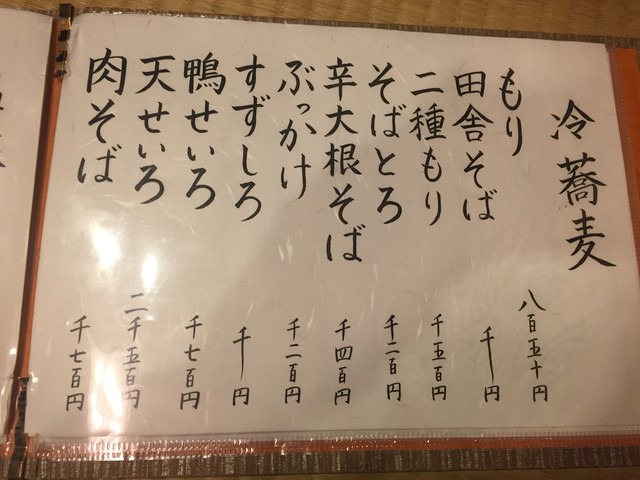 冷蕎麦
もり 八百五十円
田舎そば 千円
二種もり 千五百円
そばとろ 千二百円
辛大根そば 千四百円
ぶっかけ 千二百円
すずしろ 千円
鴨せいろ 千七百円
天せいろ 二千五百円
肉そば 千七百円